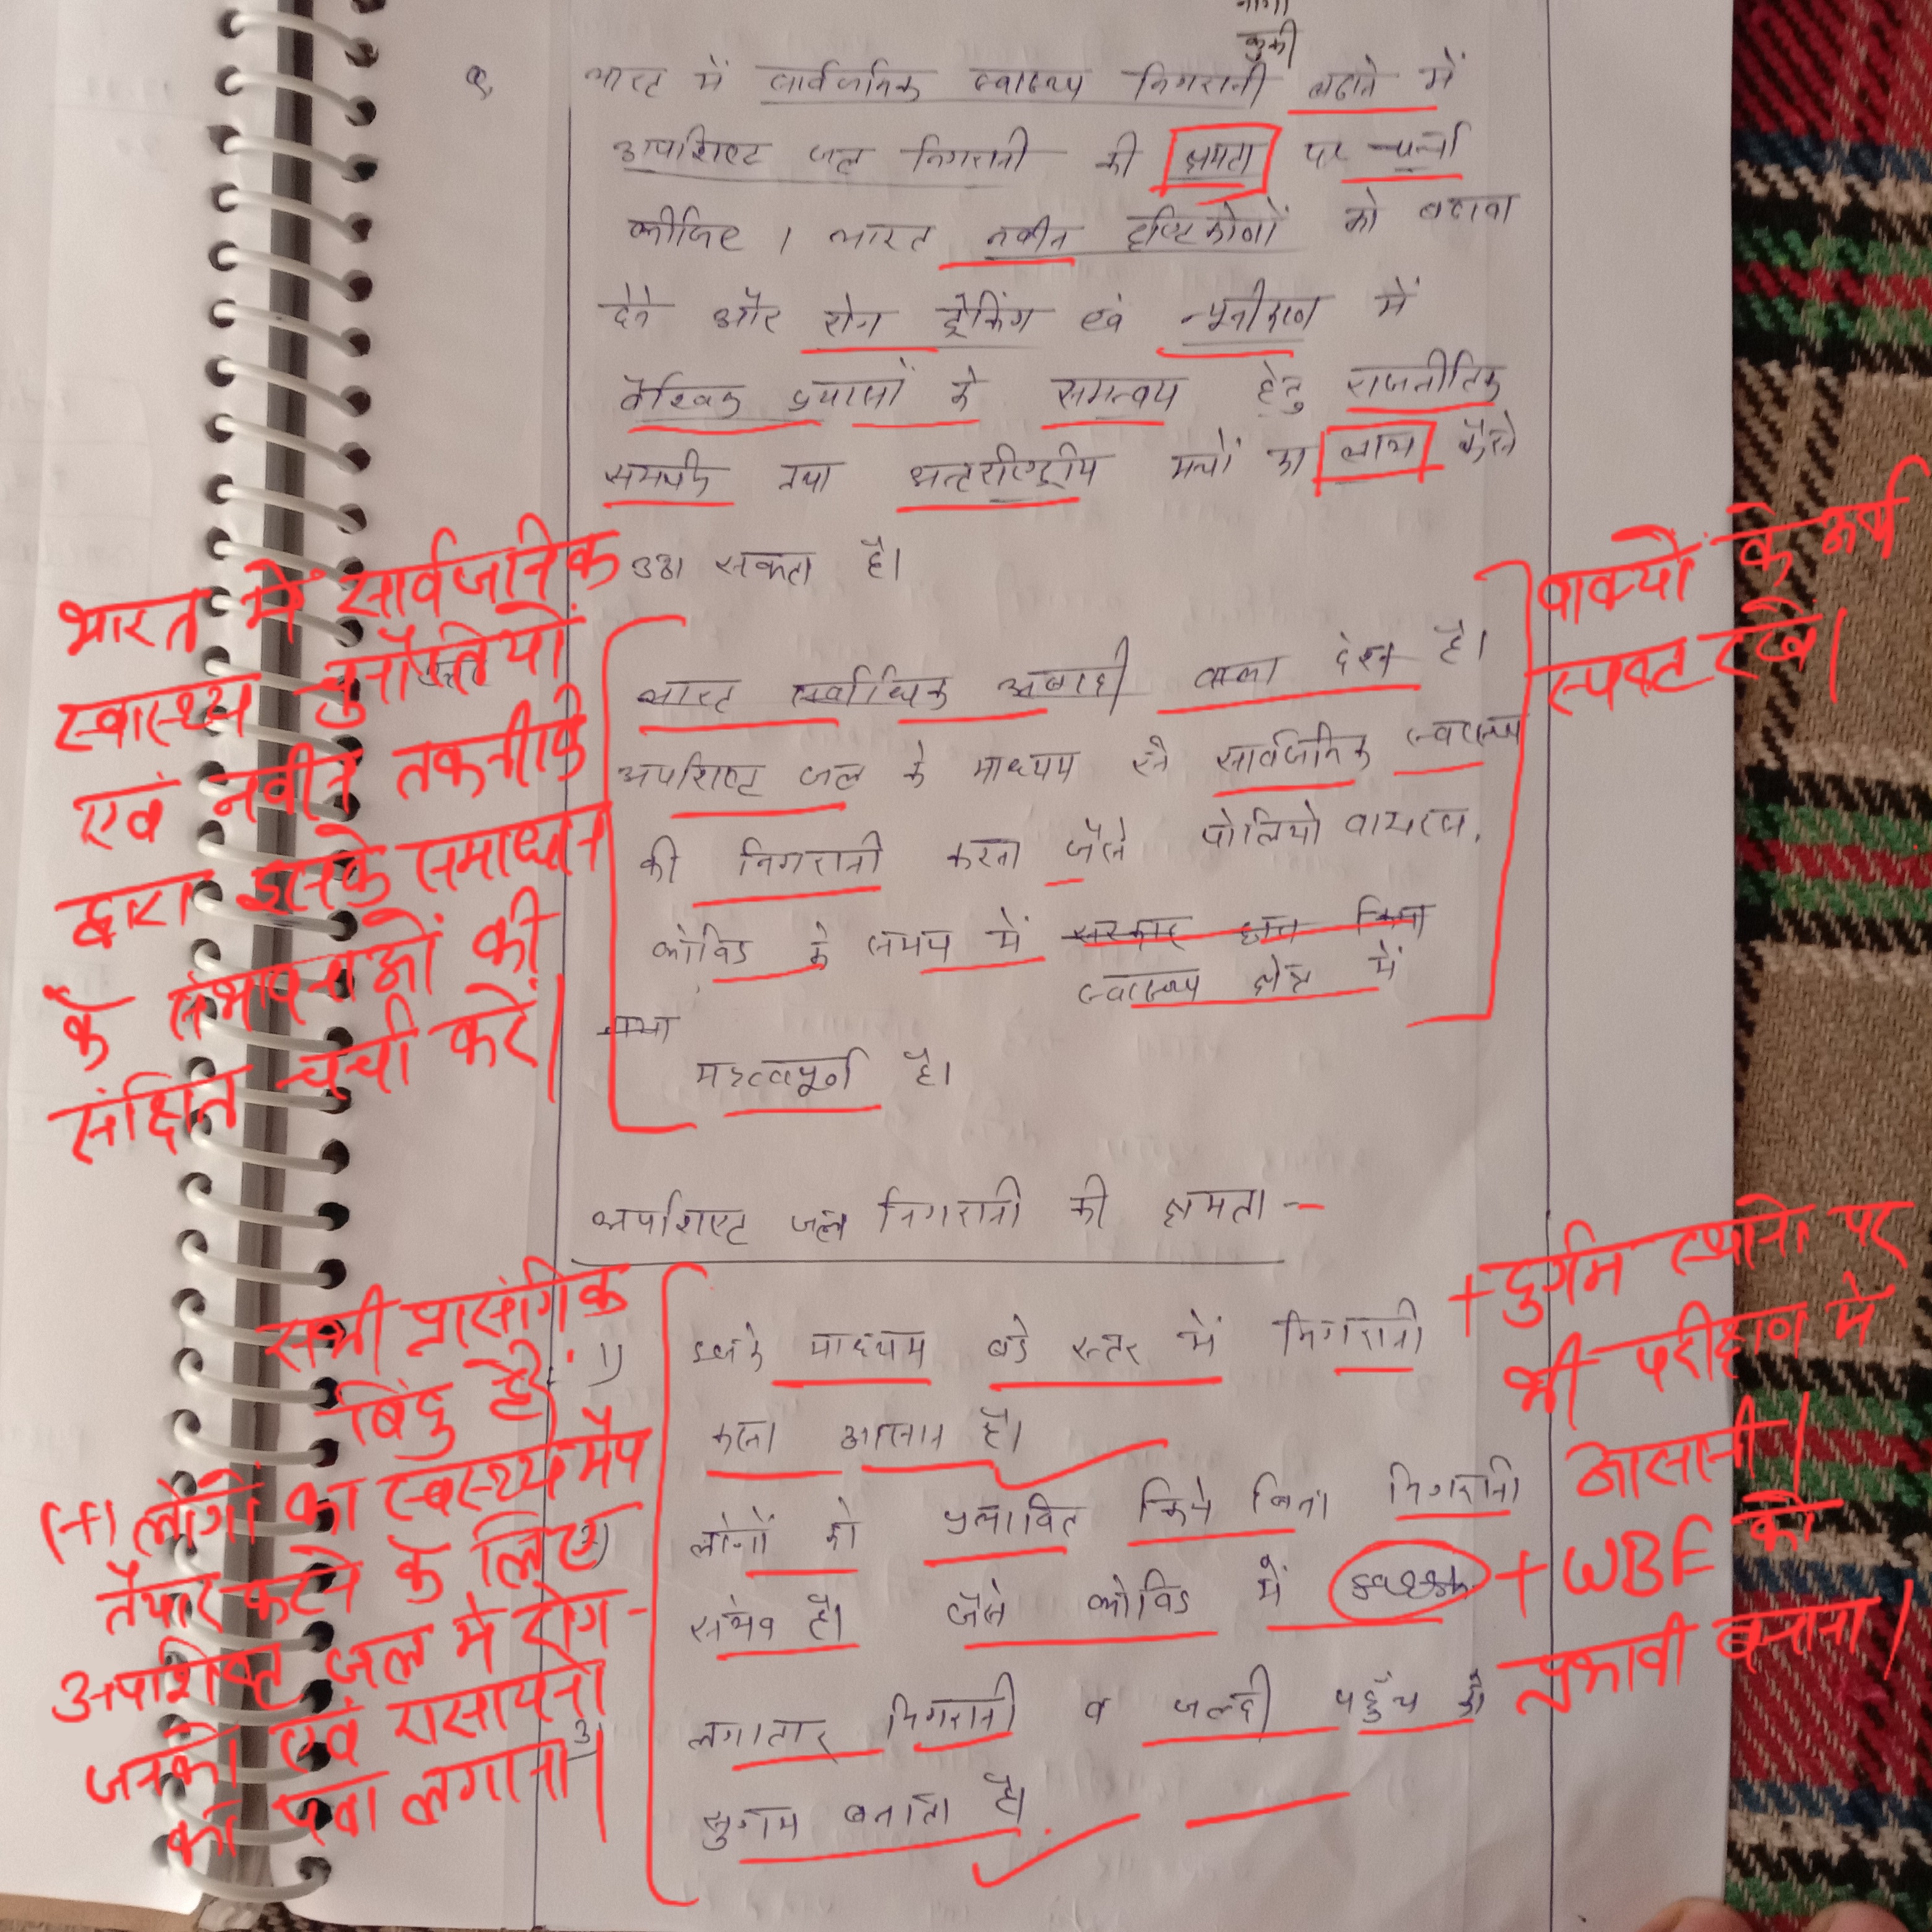 नागा
कुकी
Q. भारत में सार्वजनिक स्वास्थ्य निगरानी बढ़ाने में
अपशिष्ट जल निगरानी की क्षमता पर चर्चा
कीजिए। भारत नवीन दृष्टिकोणों को बढ़ावा
देने और रोग ट्रैकिंग एवं न्यूनीकरण में
वैश्विक प्रयासों के समन्वय हेतु राजनीतिक
समर्थन तथा अन्तर्राष्ट्रीय मंचों का लाभ कैसे
उठा सकता है।
भारत में सार्वजनिक
स्वास्थ्य चुनौतियों
एवं नवीन तकनीकि
द्वारा इसके समाधान
के संभावनाओं की
संक्षिप्त चर्चा करें।
वाक्यों के अर्थ
स्पष्ट रखें।
उत्तर
भारत सर्वाधिक आबादी वाला देश है।
अपशिष्ट जल के माध्यम से सार्वजनिक स्वास्थ्य
की निगरानी करना जैसे पोलियो वायरस,
कोविड के समय में
स्वास्थ्य क्षेत्र में
महत्वपूर्ण है।
अपशिष्ट जल निगरानी की क्षमता -
सभी प्रासंगिक
बिंदु है।
(+) लोगों का स्वस्थ्य मैप
तैयार करने के लिए
अपशिष्ट जल में रोग-
जनको एवं रासायनों
का पता लगाना।
1) इसके माध्यम बड़े स्तर में निगरानी
करना आसान है।
2) लोगों को प्रभावित किये बिना निगरानी
संभव है। जैसे कोविड में
3) लगातार निगरानी व जल्दी पहुँच को
सुगम बनाता है।
+ दुर्गम स्थानो पर
भी परीक्षण में
आसानी।
+ WBE को
प्रभावी बनाना।